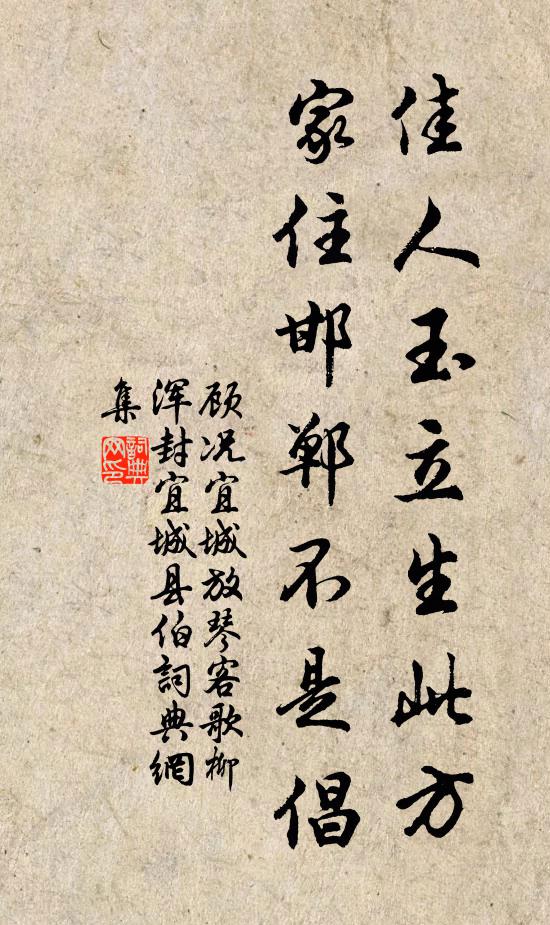 佳人玉立生此方
家住邯郸不是倡
顾况宜城放琴客歌柳
浑封宜城县伯詞典網
集
詞典
网印